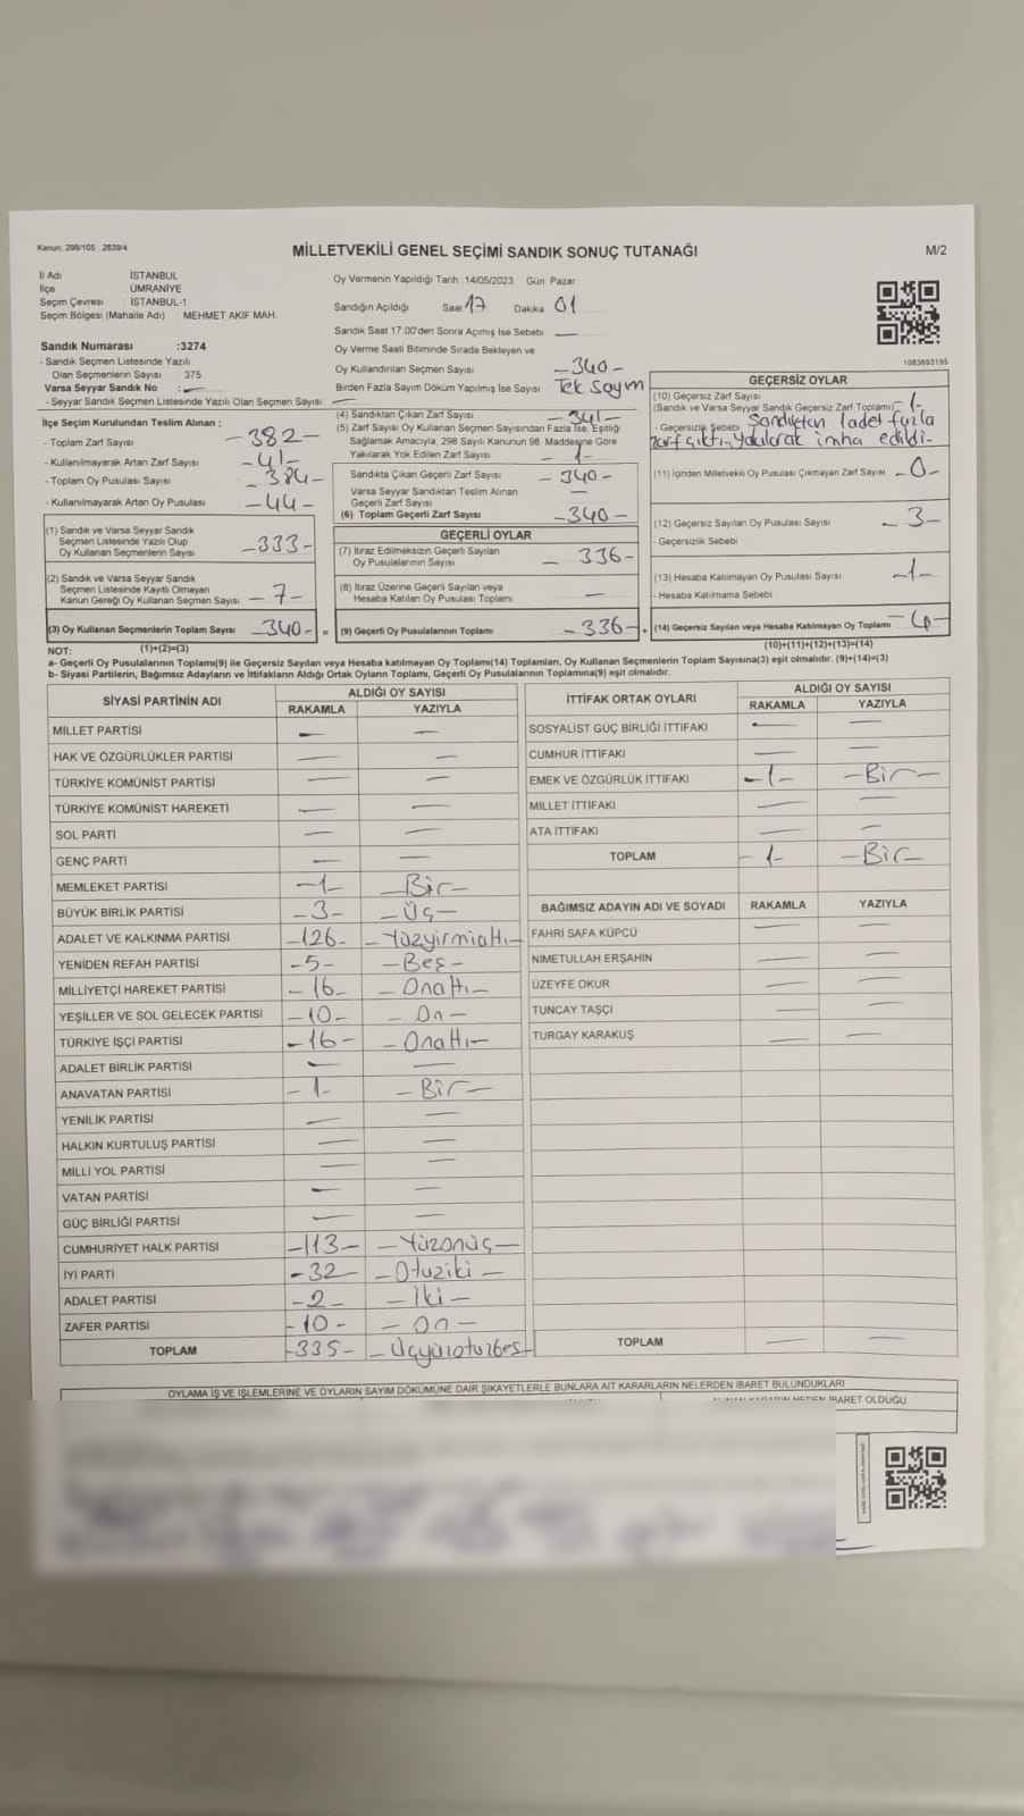 Kanun: 298/105 2839/4
MİLLETVEKİLİ GENEL SEÇİMİ SANDIK SONUÇ TUTANAĞI
M/2
İl Adı İSTANBUL
İlçe ÜMRANİYE
Seçim Çevresi İSTANBUL-1
Seçim Bölgesi (Mahalle Adı) MEHMET AKİF MAH.
Oy Vermenin Yapıldığı Tarih :14/05/2023 Gün Pazar
Sandığın Açıldığı Saat 17 Dakika 01
Sandık Saat 17.00'den Sonra Açılmış İse Sebebi —
Oy Verme Saati Bitiminde Sırada Bekleyen ve
Oy Kullandırılan Seçmen Sayısı -340-
Birden Fazla Sayım Döküm Yapılmış İse Sayısı Tek sayım
1083693195
Sandık Numarası :3274
- Sandık Seçmen Listesinde Yazılı
Olan Seçmenlerin Sayısı 375
Varsa Seyyar Sandık No : —
- Seyyar Sandık Seçmen Listesinde Yazılı Olan Seçmen Sayısı : —
İlçe Seçim Kurulundan Teslim Alınan :
- Toplam Zarf Sayısı -382-
- Kullanılmayarak Artan Zarf Sayısı -41-
- Toplam Oy Pusulası Sayısı -384-
- Kullanılmayarak Artan Oy Pusulası -44-
(1) Sandık ve Varsa Seyyar Sandık
Seçmen Listesinde Yazılı Olup
Oy Kullanan Seçmenlerin Sayısı -333-
(2) Sandık ve Varsa Seyyar Sandık
Seçmen Listesinde Kayıtlı Olmayan
Kanun Gereği Oy Kullanan Seçmen Sayısı -7-
(3) Oy Kullanan Seçmenlerin Toplam Sayısı -340- =
(1)+(2)=(3)
(4) Sandıktan Çıkan Zarf Sayısı -341-
(5) Zarf Sayısı Oy Kullanan Seçmen Sayısından Fazla İse, Eşitliği
Sağlamak Amacıyla, 298 Sayılı Kanunun 98. Maddesine Göre
Yakılarak Yok Edilen Zarf Sayısı -1-
Sandıkta Çıkan Geçerli Zarf Sayısı -340-
Varsa Seyyar Sandıktan Teslim Alınan
Geçerli Zarf Sayısı —
(6) Toplam Geçerli Zarf Sayısı -340-
GEÇERLİ OYLAR
(7) İtiraz Edilmeksizin Geçerli Sayılan
Oy Pusulalarının Sayısı - 336-
(8) İtiraz Üzerine Geçerli Sayılan veya
Hesaba Katılan Oy Pusulası Toplamı —
(9) Geçerli Oy Pusulalarının Toplamı -336- +
GEÇERSİZ OYLAR
(10) Geçersiz Zarf Sayısı
(Sandık ve Varsa Seyyar Sandık Geçersiz Zarf Toplamı) -1-
- Geçersizlik Sebebi Sandıktan 1 adet fazla
zarf çıktı, yakılarak imha edildi-
(11) İçinden Milletvekili Oy Pusulası Çıkmayan Zarf Sayısı -0-
(12) Geçersiz Sayılan Oy Pusulası Sayısı -3-
- Geçersizlik Sebebi
(13) Hesaba Katılmayan Oy Pusulası Sayısı -1-
- Hesaba Katılmama Sebebi
(14) Geçersiz Sayılan veya Hesaba Katılmayan Oy Toplamı -4-
(10)+(11)+(12)+(13)=(14)
NOT:
a- Geçerli Oy Pusulalarının Toplamı(9) ile Geçersiz Sayılan veya Hesaba katılmayan Oy Toplamı(14) Toplamları, Oy Kullanan Seçmenlerin Toplam Sayısına(3) eşit olmalıdır. (9)+(14)=(3)
b- Siyasi Partilerin, Bağımsız Adayların ve İttifakların Aldığı Ortak Oyların Toplamı, Geçerli Oy Pusulalarının Toplamına(9) eşit olmalıdır.
SİYASİ PARTİNİN ADI ALDIĞI OY SAYISI
RAKAMLA YAZIYLA
MİLLET PARTİSİ — —
HAK VE ÖZGÜRLÜKLER PARTİSİ — —
TÜRKİYE KOMÜNİST PARTİSİ — —
TÜRKİYE KOMÜNİST HAREKETİ — —
SOL PARTİ — —
GENÇ PARTİ — —
MEMLEKET PARTİSİ -1- -Bir-
BÜYÜK BİRLİK PARTİSİ -3- -Üç-
ADALET VE KALKINMA PARTİSİ -126- -Yüzyirmialtı-
YENİDEN REFAH PARTİSİ -5- -Beş-
MİLLİYETÇİ HAREKET PARTİSİ -16- -Onaltı-
YEŞİLLER VE SOL GELECEK PARTİSİ -10- -On-
TÜRKİYE İŞÇİ PARTİSİ -16- -Onaltı-
ADALET BİRLİK PARTİSİ — —
ANAVATAN PARTİSİ -1- -Bir-
YENİLİK PARTİSİ — —
HALKIN KURTULUŞ PARTİSİ — —
MİLLİ YOL PARTİSİ — —
VATAN PARTİSİ — —
GÜÇ BİRLİĞİ PARTİSİ — —
CUMHURİYET HALK PARTİSİ -113- -Yüzonüç-
İYİ PARTİ -32- -Otuziki-
ADALET PARTİSİ -2- -İki-
ZAFER PARTİSİ -10- -On-
TOPLAM -335- -Üçyüzotuzbeş-
İTTİFAK ORTAK OYLARI ALDIĞI OY SAYISI
RAKAMLA YAZIYLA
SOSYALİST GÜÇ BİRLİĞİ İTTİFAKI — —
CUMHUR İTTİFAKI — —
EMEK VE ÖZGÜRLÜK İTTİFAKI -1- -Bir-
MİLLET İTTİFAKI — —
ATA İTTİFAKI — —
TOPLAM -1- -Bir-
BAĞIMSIZ ADAYIN ADI VE SOYADI RAKAMLA YAZIYLA
FAHRİ SAFA KÜPCÜ — —
NİMETULLAH ERŞAHİN — —
ÜZEYFE OKUR — —
TUNCAY TAŞÇI — —
TURGAY KARAKUŞ — —
TOPLAM — —
OYLAMA İŞ VE İŞLEMLERİNE VE OYLARIN SAYIM DÖKÜMÜNE DAİR ŞİKAYETLERLE BUNLARA AİT KARARLARIN NELERDEN İBARET BULUNDUKLARI
NEDEN İBARET OLDUĞU